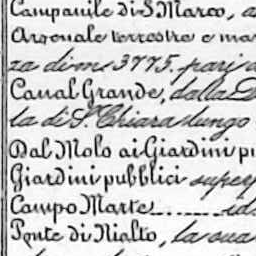 Campanile di S. Marco, a
Arsenale terrestre e mar
za di m. 3775. pari a
Canal Grande, dalla D
la di S.ta Chiara lungo
Dal Molo ai Giardini pu
Giardini pubblici superf
Campo Marte ...... id
Ponte di Rialto, la sua